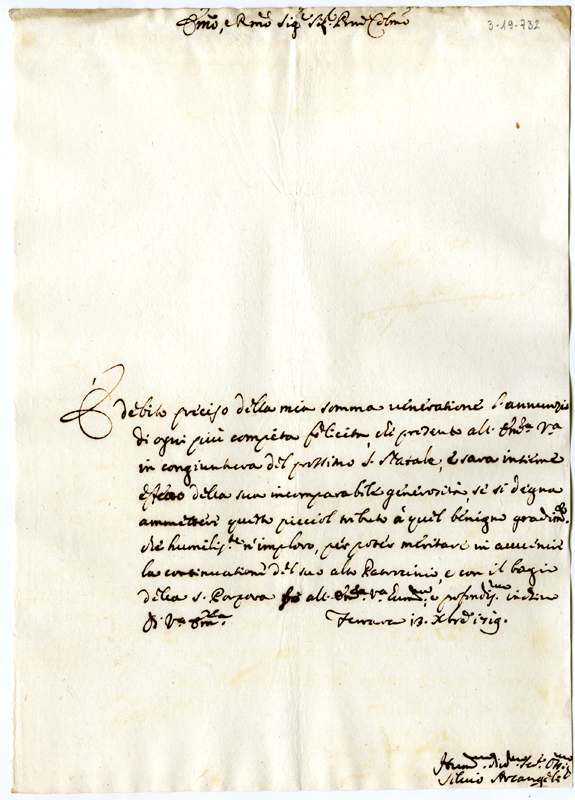 Emo, e Rmo Sig.r Sig.r Prne Colmo
3-19-732
È debito preciso della mia somma veneratione l'annunzio
di ogni più compita felicità, che presento all' Emza Va
in congiuntura del prossimo S. Natale, e sarà insieme
effetto della sua incomparabile generosità, se si degna
ammettere questo picciol tributo à quel benigno gradim.to
che humilis.te n'imploro, per poter meritare in avvenire
la continuatione del suo alto Patrocinio, e con il bagio
della S. Porpora all' Emza Va
Di Va Emza. Ferrara 13. Xbre
Silvio Arcangeli